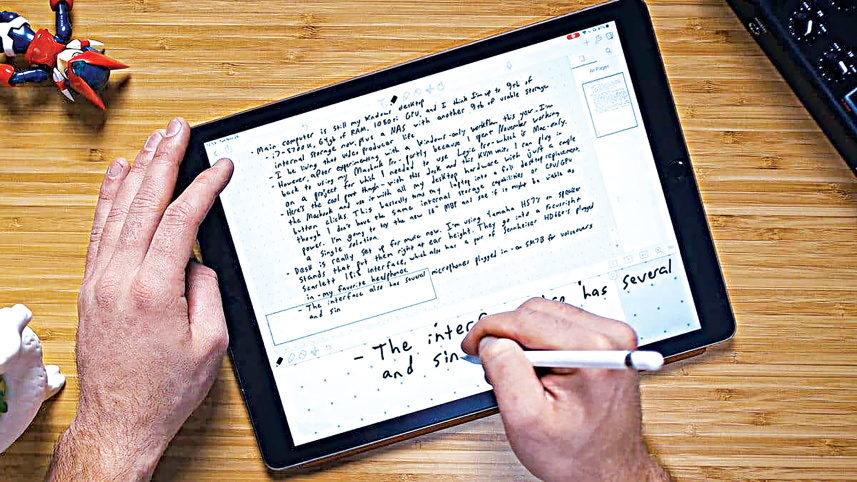 All Pages
- Main computer is still my Windows desktop
- i7-8700k, 64gb of RAM, 1080ti GPU, and I think I'm up to 9tb of
internal storage now, plus a NAS with another 9tb of usable storage.
I be living that video producer life.
- However, after experimenting with a Windows-only workflow this year, I'm
back to using my Macbook Pro, partly because I spent November working
on a project for which I needed to use Logic Pro - which is Mac only.
- Here's the cool part though - with this dock and this KVM switch, I can plug in
the Macbook and use it with all my desktop hardware with just a couple
button clicks. This basically turns my laptop into a full desktop replacement,
though I don't have the same internal storage capabilities or CPU/GPU
power. I'm going to try the new 16" MBP and see if it might be viable as
a single solution.
- Desk is really set up for music now. I'm using Yamaha HS7s on speaker
stands that put them right at ear height. They go into a Focusrite
Scarlett 18i8 interface, which also has a pair of Sennheiser HD650s plugged
in - my favorite headphones.
- The interface also has several microphones plugged in - a SM7B for voiceovers
and sin
- The inter has several
and sin